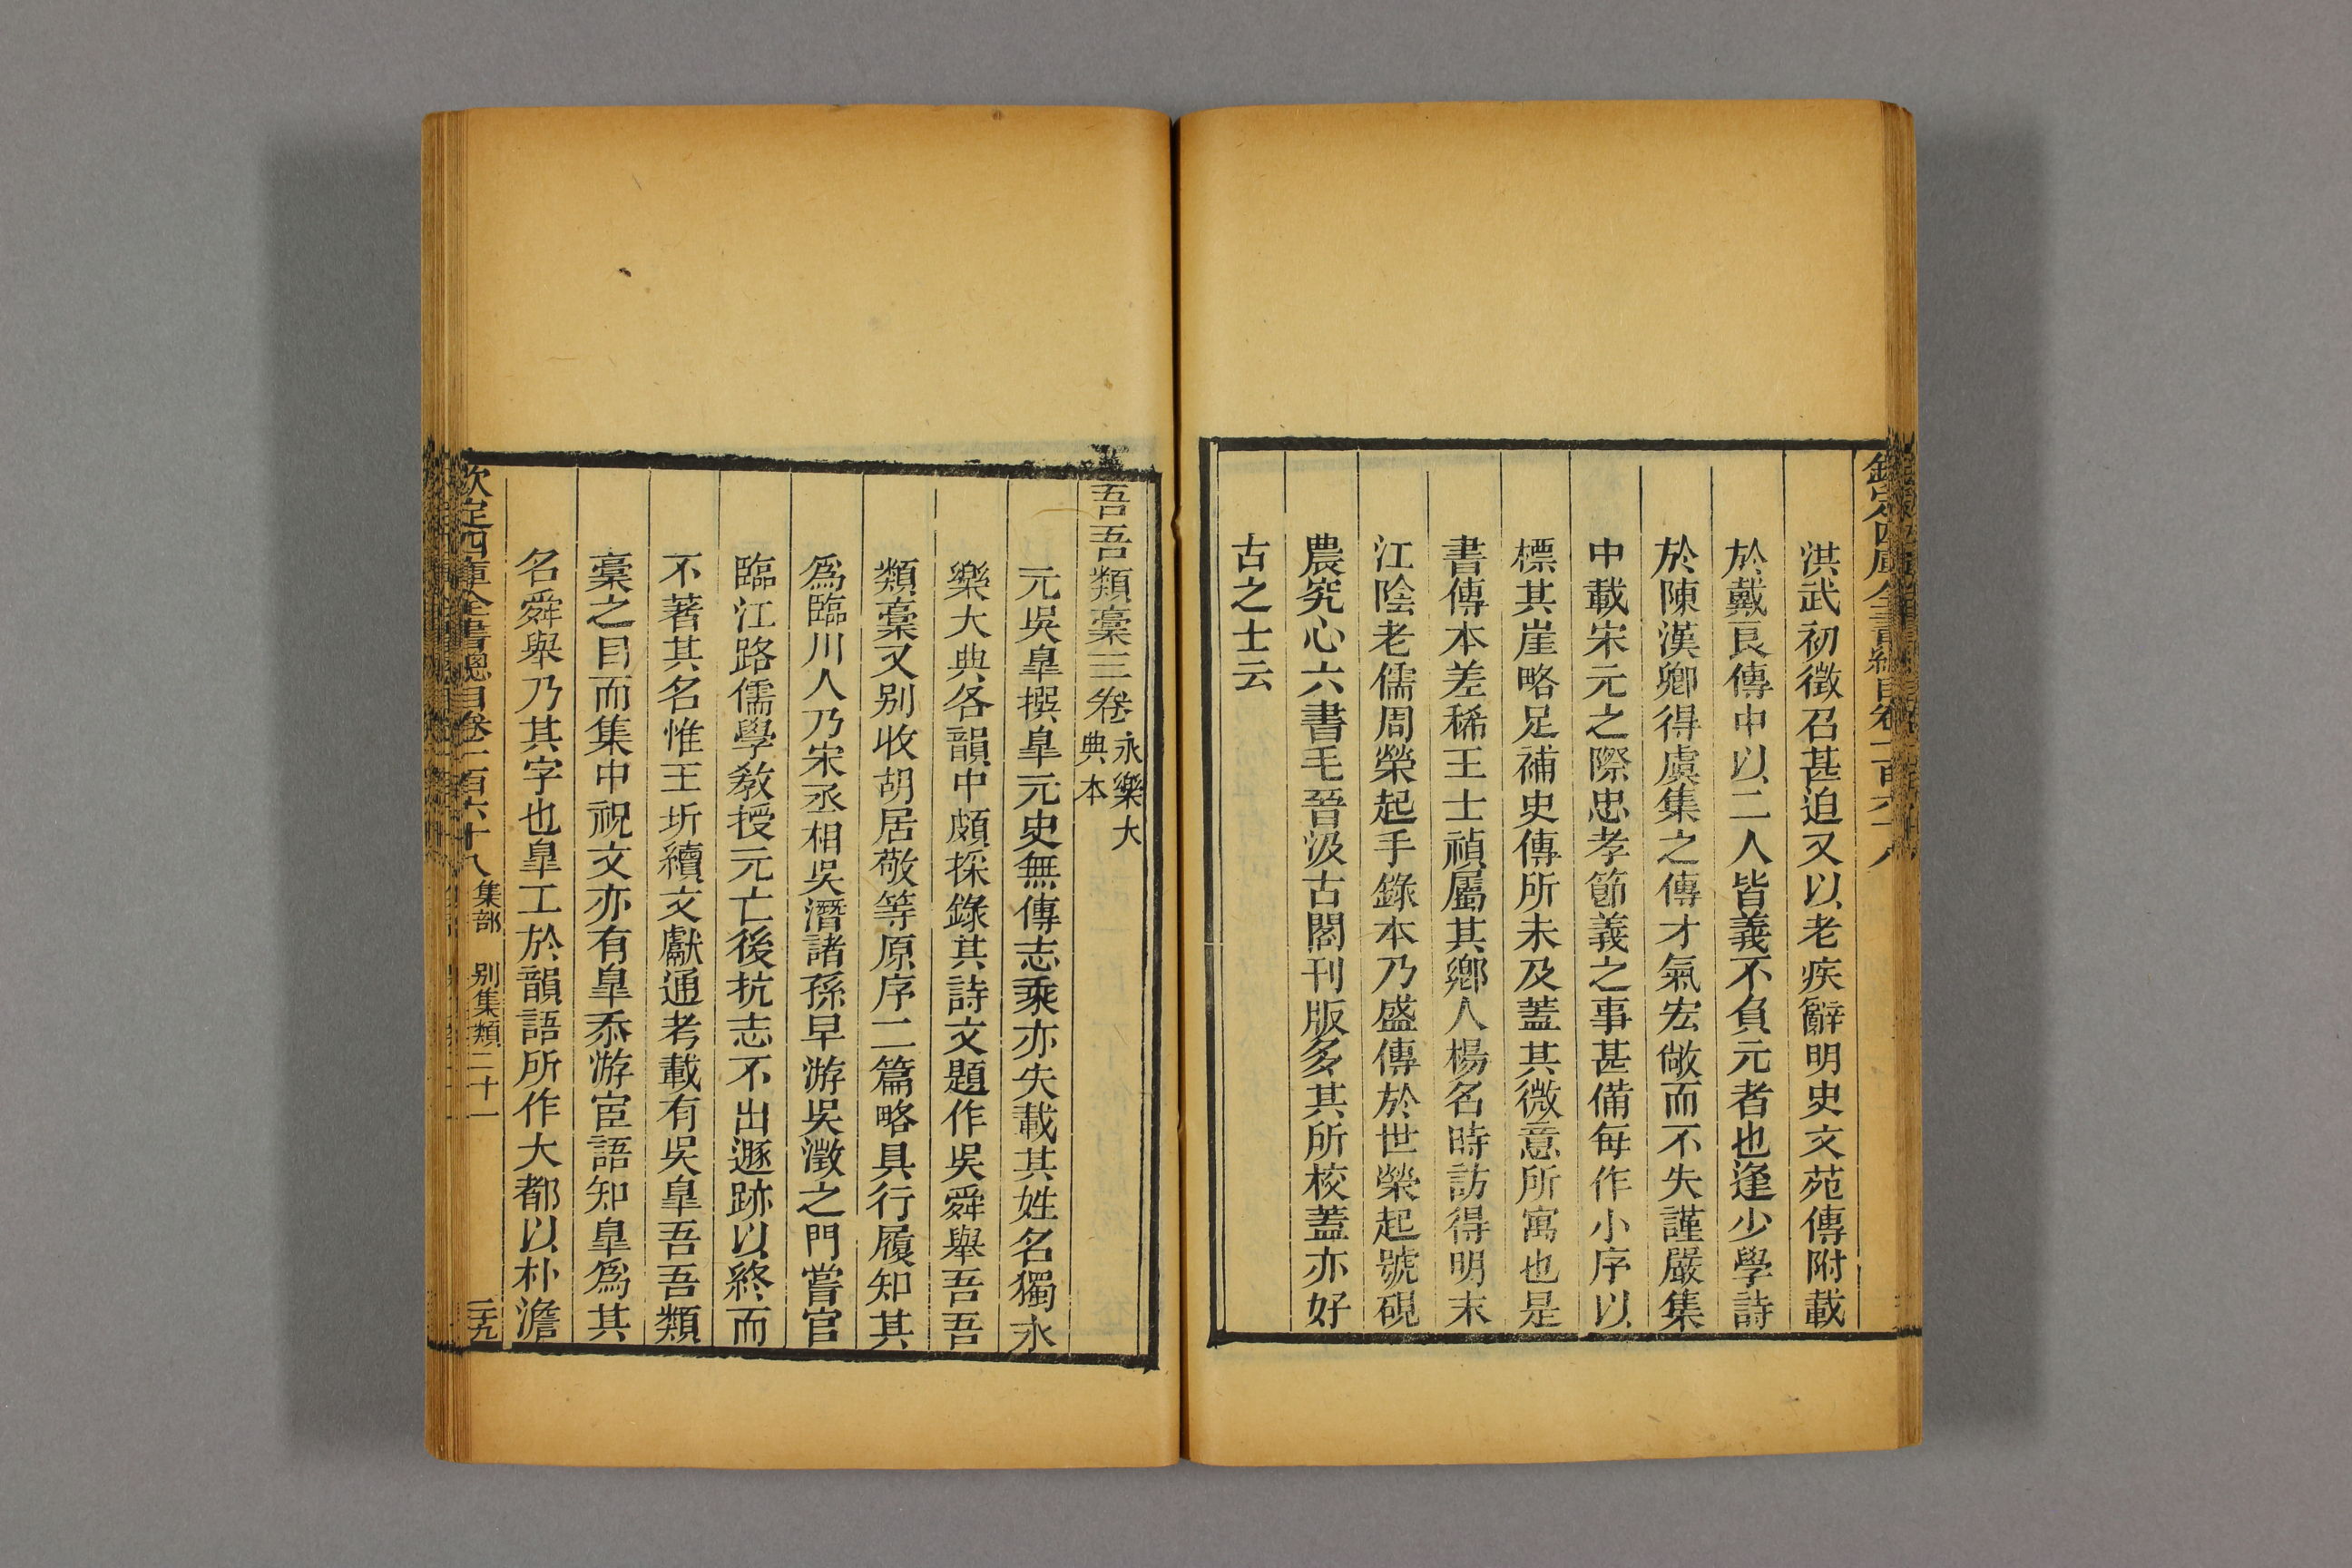 欽定四庫全書總目卷一百六十八
洪武初徵召甚迫又以老疾辭明史文苑傳附載
於戴良傳中以二人皆義不負元者也逢少學詩
於陳漢卿得虞集之傳才氣宏敞而不失謹嚴集
中載宋元之際忠孝節義之事甚備每作小序以
標其崖略足補史傳所未及蓋其微意所寓也是
書傳本差稀王士禎屬其鄉人楊名時訪得明末
江陰老儒周榮起手錄本乃盛傳於世榮起號硯
農究心六書毛晉汲古閣刊版多其所校蓋亦好
古之士云
吾吾類稾三卷永樂大典本
元吳皐撰皐元史無傳志乘亦失載其姓名獨永
樂大典各韻中頗採錄其詩文題作吳舜舉吾吾
類稾又别收胡居敬等原序二篇略具行履知其
爲臨川人乃宋丞相吳潛諸孫早游吳澂之門嘗官
臨江路儒學敎授元亡後抗志不出遯跡以終而
不著其名惟王圻續文獻通考載有吳皐吾吾類
稾之目而集中祝文亦有皐忝游宦語知皐爲其
名舜舉乃其字也皐工於韻語所作大都以朴澹
欽定四庫全書總目卷一百六十八 集部 别集類二十一 三十九